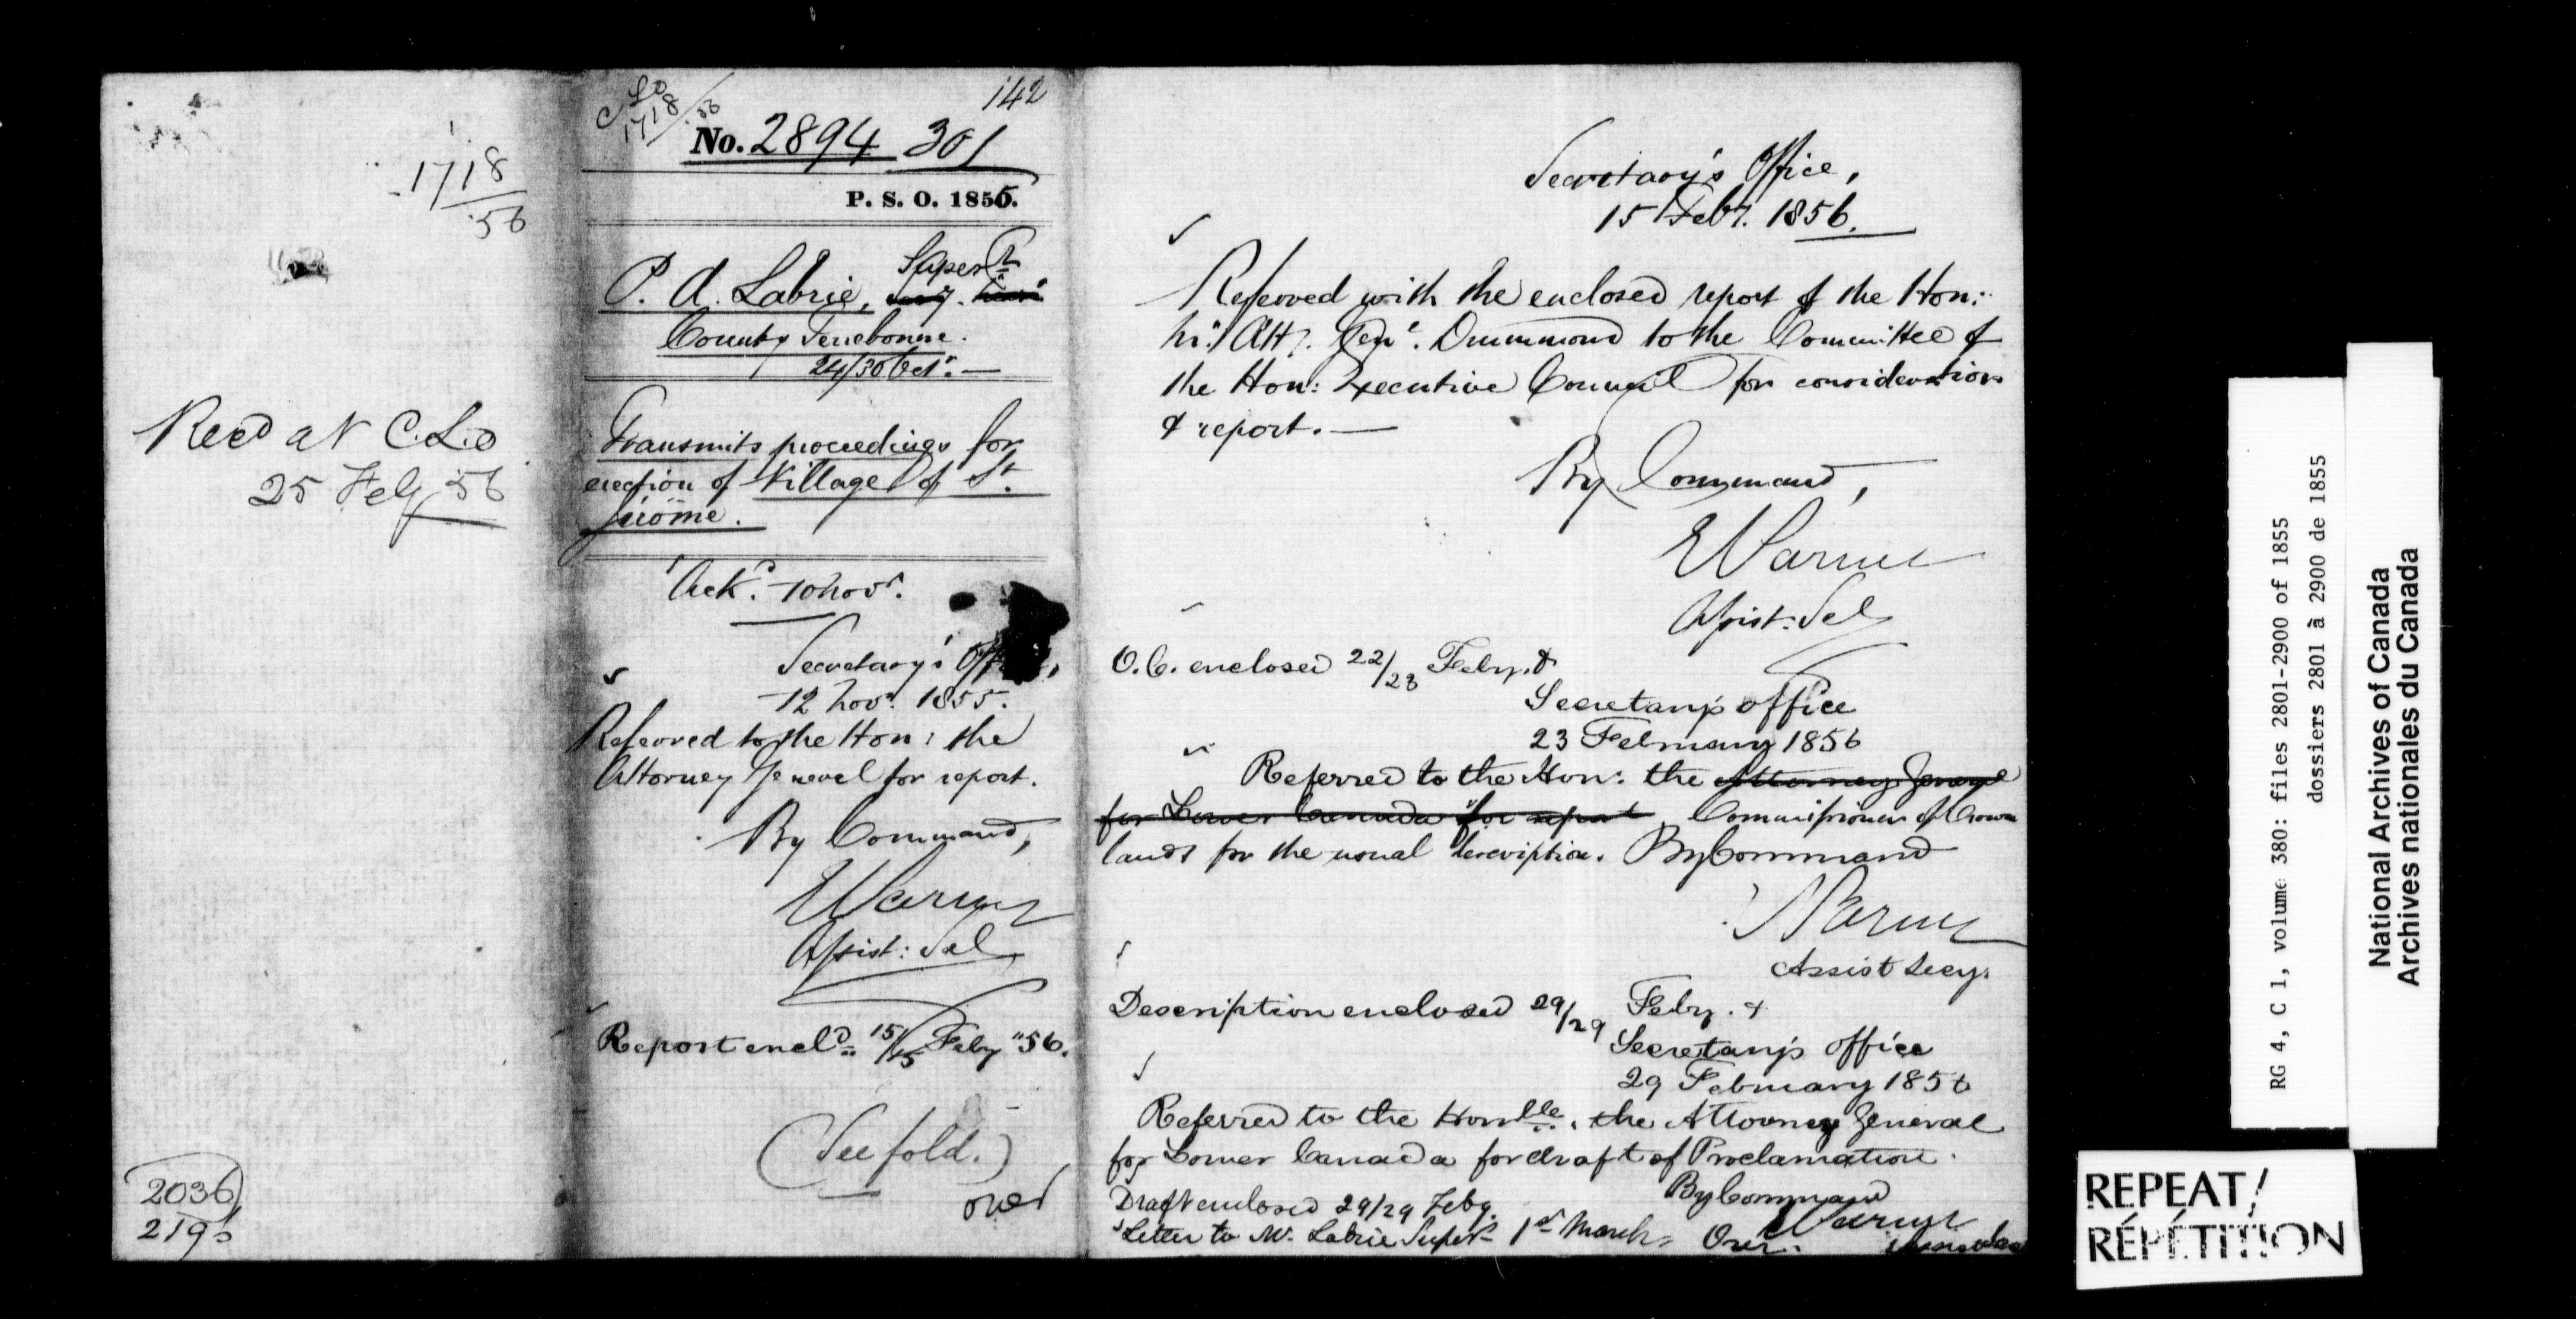 1718
56
Recd at C.L.O
25 Feby 56
2036
219
C.L.O
1718/56
142
No. 2894 301
P. S. O. 1855.
Supert
P. A. Labrie,
County Terrebonne.
24/30 Oct.
Transmits proceedings for
erection of Village of St.
Jérôme.
Ackd. 10 Novr.
Secretary's Office,
12 Novr. 1855.
Referred to the Hon: the
Attorney General for report.
By Command,
E Parent
Assist: Sec
Report encld 15/15 Feby "56.
(See fold.)
over
Secretary's Office,
15 Feby. 1856.
Referred with the enclosed report of the Hon:
Mr. Atty. Genl. Drummond to the Committee of
the Hon: Executive Council for consideration
& report.
By Command,
E Parent
Assist: Sec
O.C. enclosed 22/23 Feby. &
Secretary's office
23 February 1856
Referred to the Hon: the Attorney General
for Lower Canada for report Commissioner of Crown
lands for the usual description. By Command
E Parent
Assist Secy.
Description enclosed 29/29 Feby. &
Secretary's office
29 February 1856
Referred to the Honble. the Attorney General
for Lower Canada for draft of Proclamation.
By Command
E Parent
Draft enclosed 29/29 Feby.
Letter to Mr. Labrie Supert 1st March Over.
RG 4, C 1, volume 380: files 2801-2900 of 1855
dossiers 2801 à 2900 de 1855
National Archives of Canada
Archives nationales du Canada
REPEAT/
RÉPÉTITION